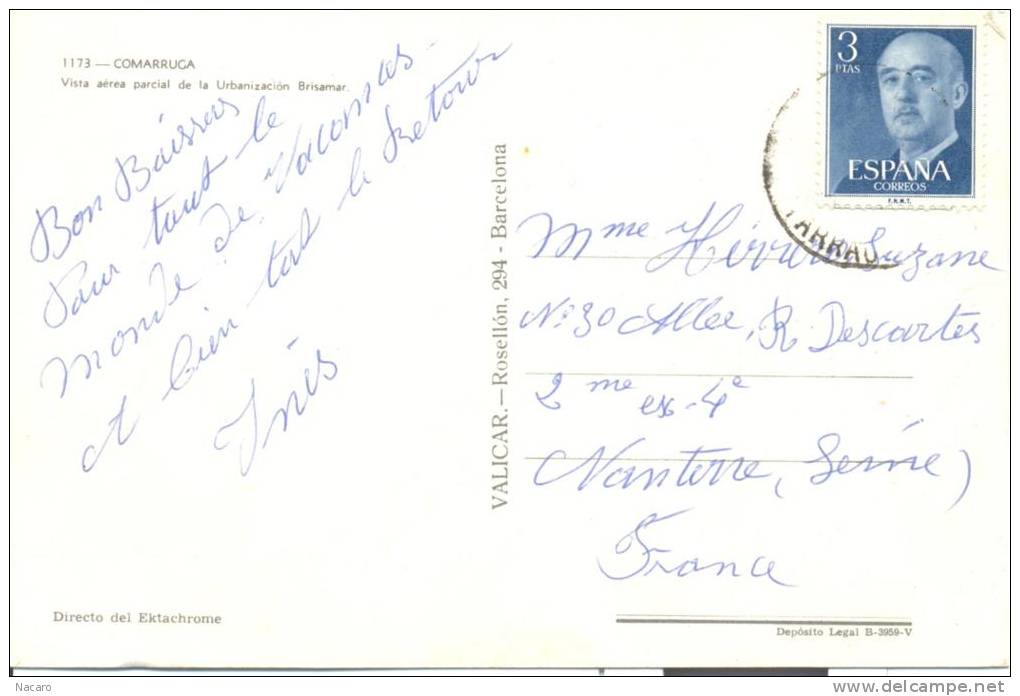 1173 — COMARRUGA
Vista aérea parcial de la Urbanización Brisamar.
Bon Baissers
Pour tout le
monde de Vacomses
et bien tot le Retour
Inés
Directo del Ektachrome
VALICAR.—Rosellón, 294 - Barcelona
3
PTAS
ESPAÑA
CORREOS
F.N.M.T.
TARRAG
Mme Suzane
Nº 30 Allee, R. Descartes
2me esc-4e
Nanterre, (Seine)
France
Depósito Legal B-3959-V
Nacaro
www.delcampe.net